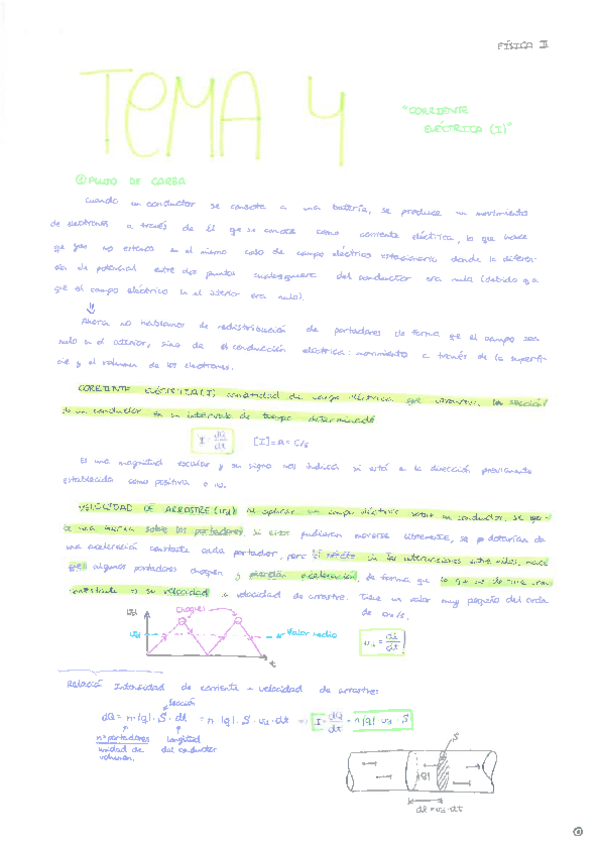 FÍSICA II
TEMA 4
"CORRIENTE
ELÉCTRICA (I)"
① FLUJO DE CARGA
Cuando un conductor se conecta a una batería, se produce un movimiento
de electrones a través de él que se conoce como corriente eléctrica, lo que hace
que ya no estemos en el mismo caso de campo eléctrico estacionario donde la diferen-
cia de potencial entre dos puntos cualesquiera del conductor era nula (debido a
que el campo eléctrico en el interior era nulo).
Ahora no hablamos de redistribución de portadores de forma que el campo sea
nulo en el interior, sino de conducción eléctrica: movimiento a través de la superfi-
cie y el volumen de los electrones.
CORRIENTE ELÉCTRICA (I): cantidad de carga eléctrica que atraviesa la sección
de un conductor en un intervalo de tiempo determinado
I = dQ/dt [I] = A = C/s
Es una magnitud escalar y su signo nos indica si está en la dirección previamente
establecida como positiva o no.
VELOCIDAD DE ARRASTRE (vd): Al aplicar un campo eléctrico sobre un conductor, se ejer-
ce una fuerza sobre los portadores. Si estos pudieran moverse libremente, se dotarían de
una aceleración constante cada portador, pero debido a las interacciones entre ellos, hace
que algunos portadores choquen y pierdan aceleración, de forma que lo que se
constante es su velocidad o velocidad de arrastre. Tiene un valor muy pequeño del orden
de cm/s.
Choques
vd
Valor medio
t
vd = dl/dt
Relación Intensidad de corriente - velocidad de arrastre:
Sección
dQ = n·|q|·S·dl = n·|q|·S·vd·dt ⇒ I = dQ/dt = n|q|·vd·S
nº portadores
unidad de
volumen.
longitud
del conductor
S
dl = vd·dt
①